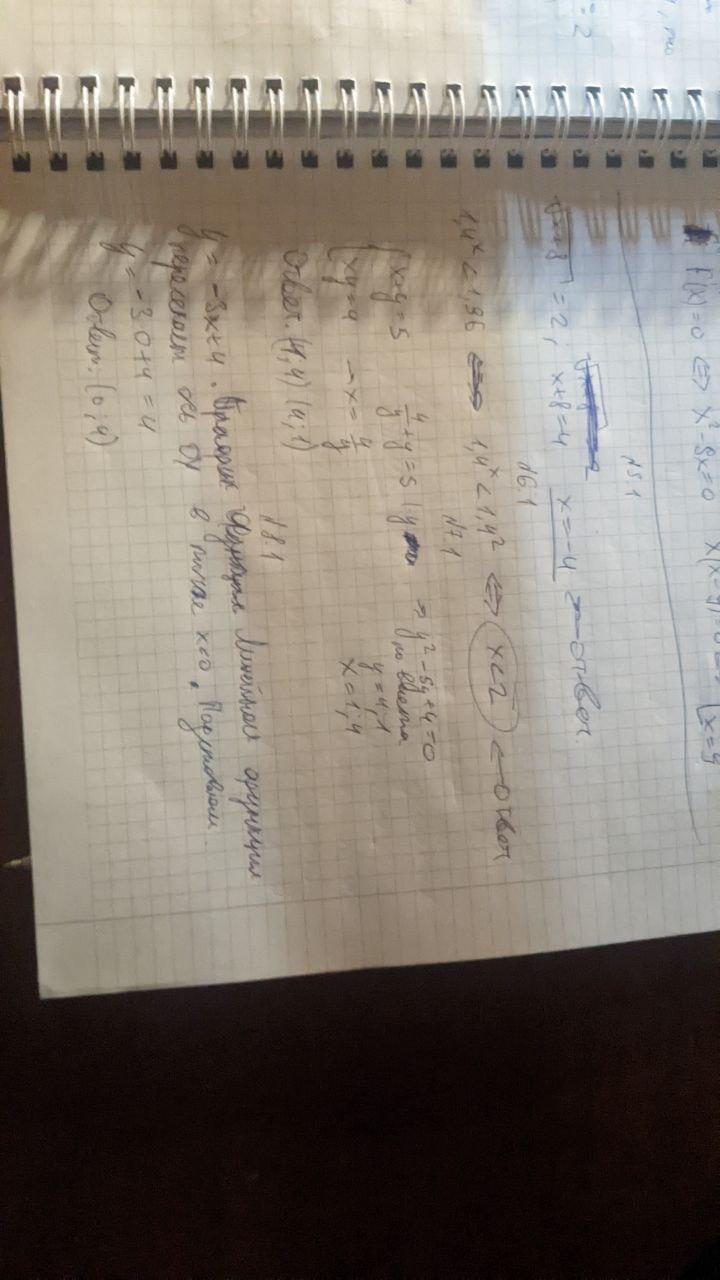 F(x)=0 ⇔ x² - 9x=0
x=9
N5.1
√x+8 = 2; x+8=4 x=-4 ← ответ.
N6.1
1,4ˣ < 1,96 ⇔ 1,4ˣ < 1,4² ⇔ x<2 ← ответ
N7.1
{ x+y=5 4/y + y = 5 |·y ⇒ y² - 5y+4=0
{ xy=4 → x = 4/y по Виета
y=4,1
x=1,4
Ответ: (1;4) (4;1)
N8.1
y = -3x+4. График функция линейная функции
пересекает ось Oy в точке x=0. Подставляем
y = -3·0+4 = 4
Ответ: (0;4)